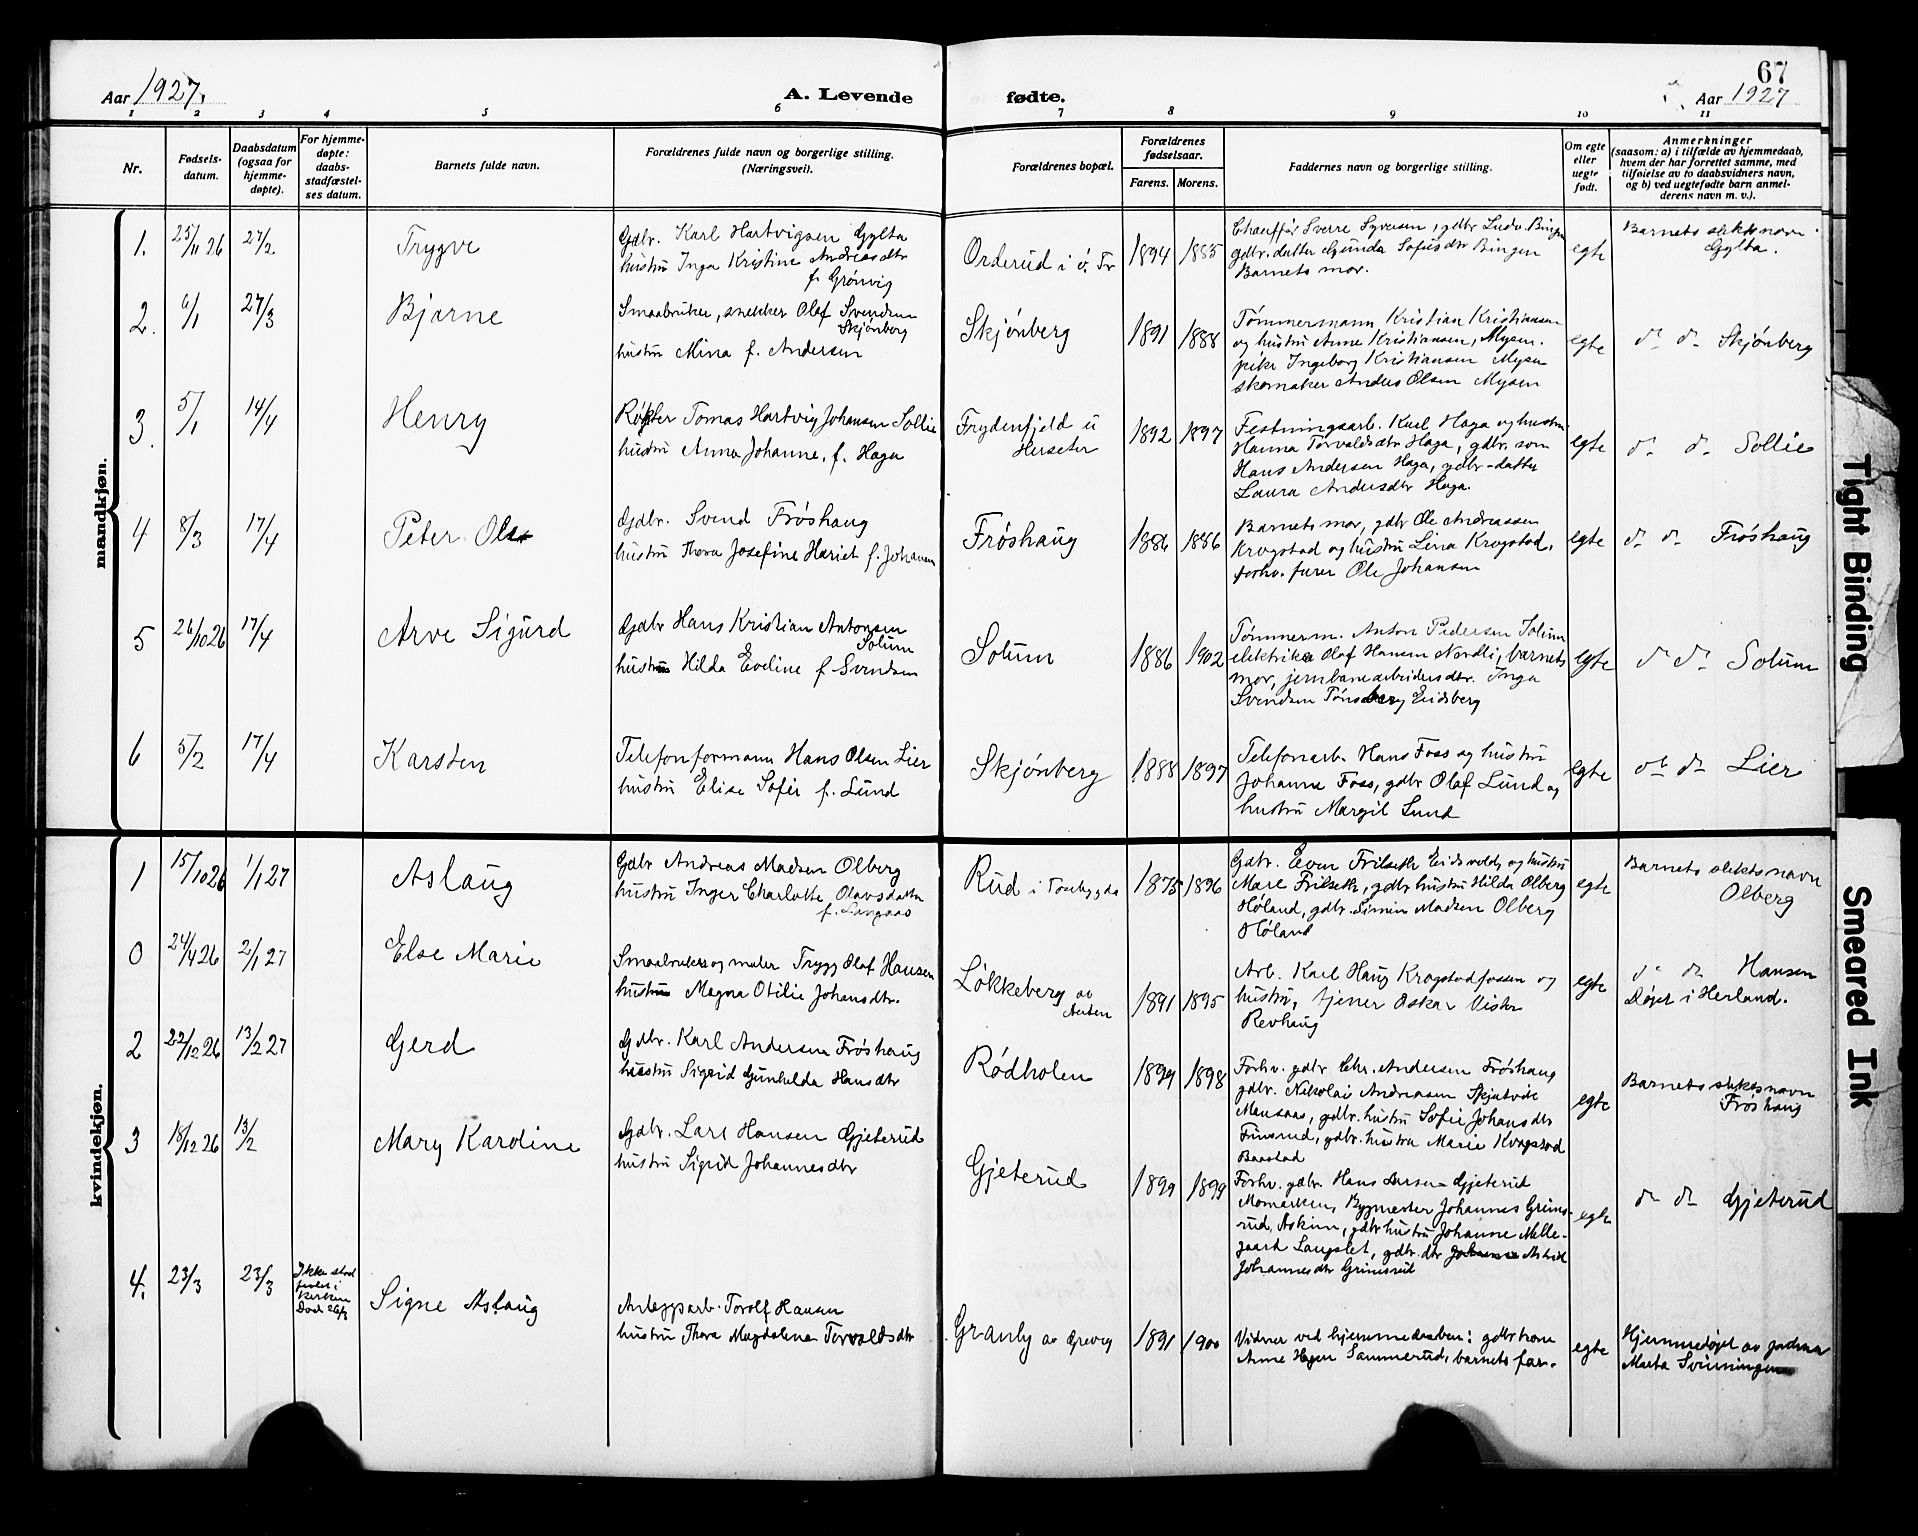 67
Aar 1927.
A. Levende fødte.
Aar 1927
1 2 3 4 5 6 7 8 9 10 11
Nr.
Fødsels-
datum.
Daabsdatum
(ogsaa for
hjemme-
døpte).
For hjemme-
døpte:
daabs-
stadfæstel-
ses datum.
Barnets fulde navn.
Forældrenes fulde navn og borgerlige stilling.
(Næringsvei).
Forældrenes bopæl.
Forældrenes
fødselsaar.
Farens. Morens.
Faddernes navn og borgerlige stilling.
Om egte
eller
uegte
født.
Anmerkninger
(saasom: a) i tilfælde av hjemmedaab,
hvem der har forrettet samme, med
tilføielse av to daabsvidners navn,
og b) ved uegtefødte barn anmel-
derens navn m. v.).
mandkjøn.
1. 25/11 26 27/2 Trygve
Gdbr. Karl Hartvigsen Gylta
hustru Inga Kristine Andreasdtr
f. Grønvig
Orderud i ö. Tr 1894 1885
Chauffør Sverre Syversen, gdbr Ludv. Bingen
gdbr. datter Gunda Sofiesdtr Bingen
Barnets mor.
egte
Barnets slektsnavn
Gylta.
2. 6/1 27/3 Bjarne
Smaabruker, snekker Olaf Svendsen
Skjønberg
hustru Mina f. Andersen
Skjønberg 1891 1888
Tømmermann Kristian Kristiansen
og hustru Anne Kristiansen, Mysen.
pike Ingeborg Kristiansen Mysen
skomaker Anders Olsen Mysen
egte
do do Skjønberg
3. 5/1 14/4 Henry
Røkter Tomas Hartvig Johansen Sollie
hustru Anna Johanne, f. Haga
Frydenfjeld u
Herseter
1892 1897
Festningsarb. Karl Haga og hustru
Hanna Torvaldsdtr Haga, gdbr. søn
Hans Andersen Haga, gdbr-datter
Laura Andersdtr Haga.
egte
do do Sollie
4 8/3 17/4 Peter
Gdbr. Svend Frøshaug
hustru Thora Josefine Hariet f. Johansen
Frøshaug 1886 1886
Barnets mor, gdbr Ole Andreassen
Krogstad og hustru Lina Krogstad,
forhv. furer Ole Johansen
egte
do do Frøshaug
5 26/10 26 17/4 Arve Sigurd
Gdbr Hans Kristian Antonsen
Solum
hustru Hilda Eveline f. Svendsen
Solum 1886 1902
Tømmerm. Anton Pedersen Solum
elektriker Olaf Hansen Nordli, barnets
mor, jernbanearbeidersdtr. Inga
Svendsen Tønsberg Eidsberg
egte
do do Solum
6 5/2 17/4 Karsten
Telefonformann Hans Olsen Lier
hustru Elise Sofie f. Lund
Skjønberg 1888 1897
Telefonarb. Hans Foss og hustru
Johanne Foss, gdbr Olaf Lund og
hustru Margit Lund
egte
do do Lier
kvindekjøn.
1 15/10 26 1/1 27 Aslaug
Gdbr Andreas Madsen Olberg
hustru Inger Charlotte Olavsdatter
f. Langaas
Rud i Tosebygda 1875 1896
Gdbr. Even Frilseth Eidsvold og hustru
Marie Frilseth, gdbr hustru Hilda Olberg
Høland, gdbr. Simen Madsen Olberg
Høland
egte
Barnets slektsnavn
Olberg
0 24/4 26 2/1 27 Else Marie
Smaabruker og maler Trygg Olaf Hansen
hustru Magna Otilie Johansdtr.
Løkkeberg av
1891 1895
Arb. Karl Haug Krogstadfossen og
hustru, tjener Oskar
Revhaug
egte
do do Hansen
Døpt i Herland.
2 22/12 26 13/2 27 Gerd
Gdbr. Karl Andersen Frøshaug
hustru Sigrid Gunhilda Hansdtr
Rødholen 1899 1898
Forhv. gdbr Chr. Andersen Frøshaug
gdbr. Nikolai Andreassen Skjatvik
gdbr. hustru Sofie Johansdtr
Finsrud, gdbr. hustru Marie Krogstad
Baastad
egte
Barnets slektsnavn
Frøshaug
3 18/12 26 13/2 Mary Karoline
Gdbr. Lars Hansen Gjeterud
hustru Sigrid Johannesdtr
Gjeterud 1899 1899
Forhv. gdbr. Hans Larsen Gjeterud
Momarken, Bygmester Johannes Grims-
rud, Askim, gdbr hustru Johanne Melle-
gaard Langslet, gdbr. dtr Astrid
Johannesdtr Grimsrud
egte
do do Gjeterud
4. 23/3 23/3
Ikke stad
festet i
kirken
Død 26/3
Signe Aslaug
Anlegsarb. Torolf Hansen
hustru Thora Magdalena Torvaldsdtr
Granly av Grevig 1891 1900
Vidner ved hjemmedaaben: gdbr kone
Anne Hagen Sammerud, barnets far.
egte
Hjemmedøpt av jordmor
Marta Svinningen
Tight Binding
Smeared Ink